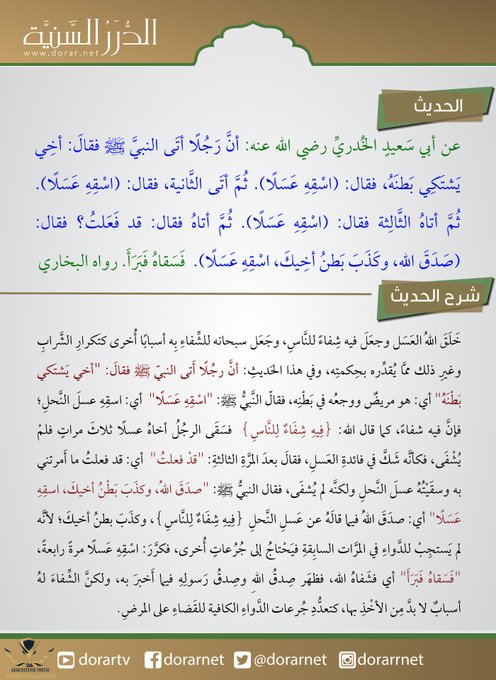 الدُّرَرُ السَّنِيَّة
www.dorar.net
الحديث
عن أبي سَعيدٍ الخُدريِّ رضي الله عنه: أنَّ رَجُلًا أتَى النبيَّ ﷺ فقالَ: أخِي
يَشتَكِي بَطنَهُ، فقال: (اسْقِهِ عَسَلًا). ثُمَّ أتَى الثَّانية، فقال: (اسْقِهِ عَسَلًا).
ثُمَّ أتاهُ الثَّالِثة فقال: (اسْقِهِ عَسَلًا). ثُمَّ أتاهُ فقال: قد فَعَلتُ؟ فقال:
(صَدَقَ الله، وكَذَبَ بَطنُ أخِيكَ، اسْقِهِ عَسَلًا). فَسَقاهُ فَبَرَأَ. رواه البخاري
شرح الحديث
خَلَقَ اللهُ العَسَل وجعلَ فيه شِفاءً للنَّاسِ، وجَعَل سبحانه للشِّفاءِ بِه أسبابًا أُخرى كتَكرارِ الشَّرابِ
وغيرِ ذلك ممَّا يُقدِّره بحِكمتِه، وفي هذا الحَديث: أنَّ رجُلًا أتَى النبيّ ﷺ فقالَ: "أخي يَشتكي
بَطْنَهُ" أي: هو مريضٌ ووجعُه في بَطْنِه، فقالَ النَّبيُّ ﷺ: "اسْقِهِ عَسَلًا" أي: اسقِهِ عسلَ النَّحلِ؛
فإنَّ فيه شفاءً، كما قال الله: {فِيهِ شِفَاءٌ لِلنَّاسِ} فسَقَى الرجُلُ أخاهُ عسلًا ثلاثَ مراتٍ فلمْ
يُشْفَى، فكأنَّه شَكَّ في فائدةِ العَسلِ، فقالَ بعدَ المَرَّةِ الثالثةِ: "قدْ فعلتُ" أي: قد فعلتُ ما أمرتني
به وسقيْتُهُ عسلَ النَّحلِ ولكنَّه لم يُشفَى، فقال النبيُّ ﷺ: "صدَقَ اللهُ، وكذَبَ بَطْنُ أخيكَ، اسقِهِ
عَسَلًا" أي: صدَقَ اللهُ فيما قالَهُ عن عَسلِ النَّحلِ {فِيهِ شِفَاءٌ لِلنَّاسِ}، وكذَبَ بطنُ أخيكَ؛ لأنَّه
لم يَستجِبْ للدَّواءِ في المَرَّات السابقةِ فيَحْتاجُ إلى جُرُعاتٍ أُخرى، فكرَّرَ: اسْقِهِ عَسلًا مرةً رابعةً،
"فَسَقاهُ فَبَرَأَ" أي فشَفاهُ الله، فظهَر صِدقُ اللهِ وصِدقُ رَسولِهِ فيما أخبَر به، ولكنَّ الشِّفاءَ لهُ
أسبابٌ لا بدَّ مِن الأخْذِ بها، كتعدُّدِ جُرعات الدَّواءِ الكافية للقَضاءِ على المرضِ.
dorartv dorarnet @dorarnet dorarrnet
ARAB DEFENSE FORUM